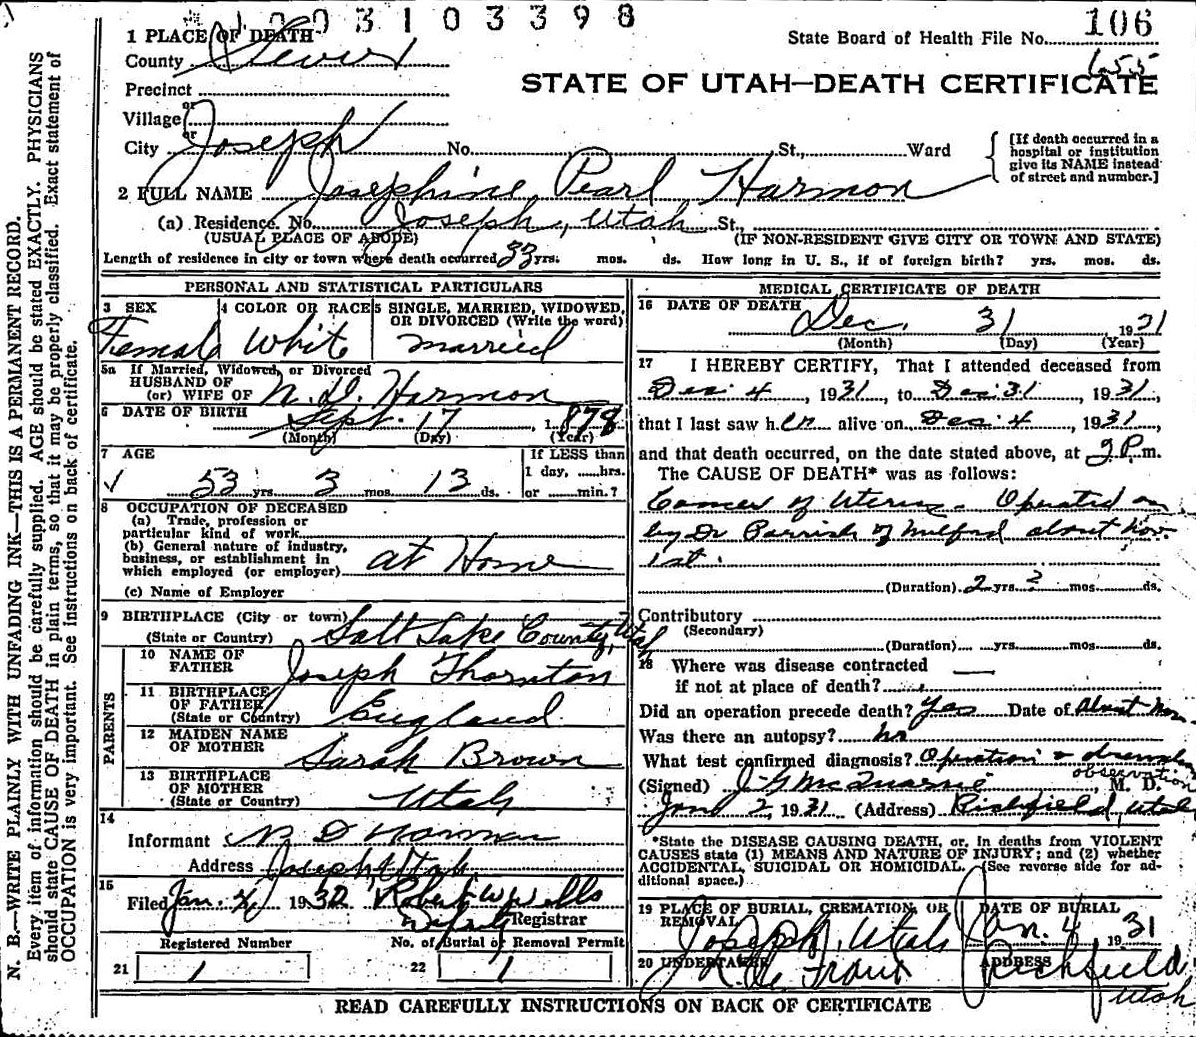 1003103398
106
State Board of Health File No.
655
STATE OF UTAH—DEATH CERTIFICATE
1 PLACE OF DEATH
County Sevier
Precinct
or
Village
or
City Joseph No. St., Ward
[If death occurred in a hospital or institution give its NAME instead of street and number.]
2 FULL NAME Josephine Pearl Harmon
(a) Residence. No. Joseph, Utah St.,
(USUAL PLACE OF ABODE) (IF NON-RESIDENT GIVE CITY OR TOWN AND STATE)
Length of residence in city or town where death occurred 33 yrs. mos. ds. How long in U. S., if of foreign birth? yrs. mos. ds.
PERSONAL AND STATISTICAL PARTICULARS
3 SEX Female
4 COLOR OR RACE White
5 SINGLE, MARRIED, WIDOWED, OR DIVORCED (Write the word) Married
5a If Married, Widowed, or Divorced
HUSBAND OF
(or) WIFE OF N. D. Harmon
6 DATE OF BIRTH Sept. 17, 1878
(Month) (Day) (Year)
7 AGE
53 yrs. 3 mos. 13 ds.
If LESS than
1 day, hrs.
or min.?
8 OCCUPATION OF DECEASED
(a) Trade, profession or
particular kind of work
(b) General nature of industry,
business, or establishment in
which employed (or employer) at Home
(c) Name of Employer
9 BIRTHPLACE (City or town)
(State or Country) Salt Lake County, Utah
PARENTS
10 NAME OF
FATHER Joseph Thornton
11 BIRTHPLACE
OF FATHER
(State or Country) England
12 MAIDEN NAME
OF MOTHER Sarah Brown
13 BIRTHPLACE
OF MOTHER
(State or Country) Utah
14
Informant N D Harmon
Address Joseph, Utah
15
Filed Jan. 4, 1932 Robert W. Wells
Deputy Registrar
Registered Number
21 1
No. of Burial or Removal Permit
22 1
MEDICAL CERTIFICATE OF DEATH
16 DATE OF DEATH
Dec. 31, 1931
(Month) (Day) (Year)
17 I HEREBY CERTIFY, That I attended deceased from
Dec. 4, 1931, to Dec. 31, 1931,
that I last saw her alive on Dec 4, 1931,
and that death occurred, on the date stated above, at 2 P. m.
The CAUSE OF DEATH* was as follows:
Cancer of Uterus. Operated on
by Dr Parrish of Milford about Nov.
1st.
(Duration) 2 yrs. ? mos. ds.
Contributory
(Secondary)
(Duration) yrs. mos. ds.
18 Where was disease contracted
if not at place of death?
Did an operation precede death? Yes Date of About Nov.
Was there an autopsy? no
What test confirmed diagnosis? Operation &
observation
(Signed) J. G. McQuarrie, M. D.
Jan 2, 1931 (Address) Richfield, Utah
*State the DISEASE CAUSING DEATH, or, in deaths from VIOLENT
CAUSES state (1) MEANS AND NATURE OF INJURY; and (2) whether
ACCIDENTAL, SUICIDAL OR HOMICIDAL. (See reverse side for ad-
ditional space.)
19 PLACE OF BURIAL, CREMATION, OR
REMOVAL Joseph, Utah
DATE OF BURIAL
Jan. 4 1931
20 UNDERTAKER
ADDRESS
Richfield
Utah
READ CAREFULLY INSTRUCTIONS ON BACK OF CERTIFICATE
N. B.—WRITE PLAINLY WITH UNFADING INK—THIS IS A PERMANENT RECORD.
Every item of information should be carefully supplied. AGE should be stated EXACTLY. PHYSICIANS
should state CAUSE OF DEATH in plain terms, so that it may be properly classified. Exact statement of
OCCUPATION is very important. See instructions on back of certificate.